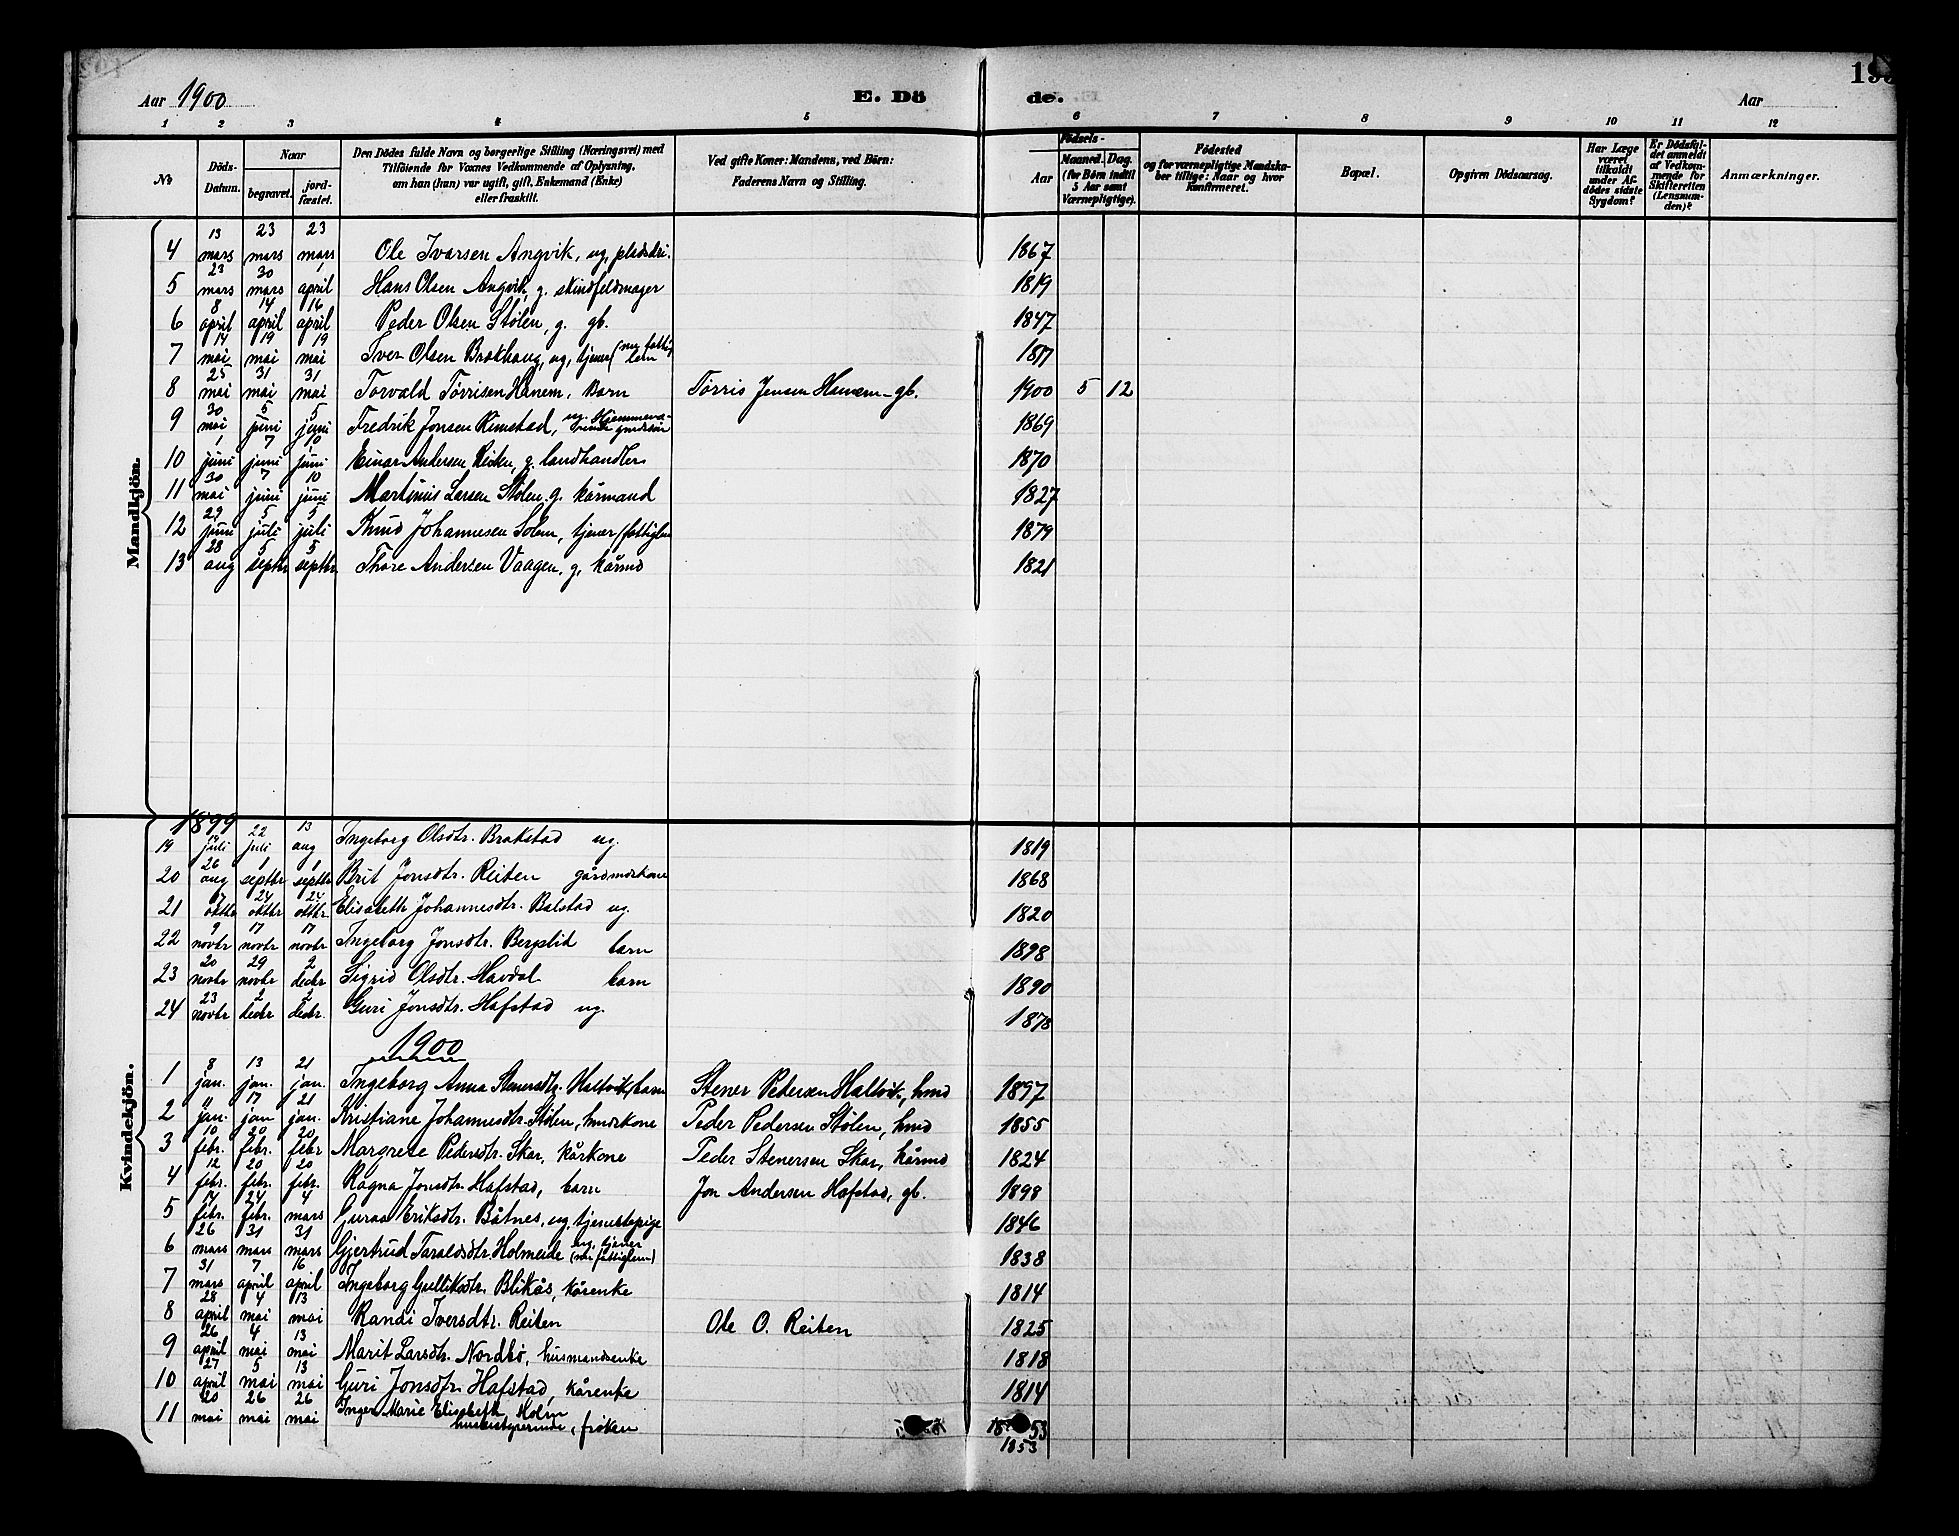 193
Aar 1900 E. Dö de. Aar
1 2 3 4 5 6 7 8 9 10 11 12
№ Döds-Datum. Naar begravet. jord-fæstet. Den Dödes fulde Navn og borgerlige Stilling (Næringsvei) med Tilföiende for Voxnes Vedkommende af Oplysning, om han (hun) var ugift, gift, Enkemand (Enke) eller fraskilt. Ved gifte Koner: Mandens, ved Börn: Faderens Navn og Stilling. Födsels- Aar Maaned. Dag. (for Börn indtil 5 Aar samt Værnepligtige). Födested og for værnepligtige Mandskaber tillige: Naar og hvor konfirmeret. Bopæl. Opgiven Dödsaarsag. Har Læge været tilkaldt under Afdödes sidste Sygdom? Er Dödsfaldet anmeldt af Vedkommende for Skifteretten (Lensmanden)? Anmærkninger.
Mandkjön.
4 13 mars 23 mars 23 mars Ole Ivarsen Angvik, ug, pladsdr. 1867
5 23 mars 30 mars 1 april Hans Olsen Angvik, g. skindfeldmager 1819
6 8 april 14 april 16 april Peder Olsen Stølen, g. gb. 1847
7 14 mai 19 mai 19 mai Iver Olsen Brokhaug, ug, tjener 1817
8 25 mai 31 mai 31 mai Torvald Tørrisen Hanem, Barn Tørris Jensen Hanem - gb. 1900 5 12
9 30 mai 5 juni 5 juni Fredrik Jonsen Rimstad, ug. 1869
10 1 juni 7 juni 10 juni Einar Andersen Reiten, g. landhandler 1870
11 30 mai 7 juni 10 juni Martinus Larsen Stølen, g. kårmand 1827
12 29 juni 5 juli 5 juli Knud Johannesen Solem, tjener (fattiglem 1879
13 28 aug 5 septbr 5 septbr Thore Andersen Vaagen, g. kårmd 1821
Kvindekjön.
1899
19 14 juli 22 juli 13 aug Ingeborg Olsdtr. Brokstad ug. 1819
20 26 aug 1 septbr 1 septbr Brit Jonsdtr. Reiten gårdmdskone 1868
21 oktbr 24 oktbr 24 oktbr Elisabeth Johannesdtr. Bolstad ug. 1820
22 9 novbr 17 novbr 17 novbr Ingeborg Jonsdtr. Bergslid barn 1898
23 20 novbr 29 novbr 2 decbr Sigrid Olsdtr. Havdal barn 1890
24 23 novbr 2 decbr 2 decbr. Guri Jonsdtr. Hafstad ug. 1878
1900
1 8 jan. 13 jan. 21 jan. Ingeborg Anna Stenersdtr. Haltvik, barn Stener Pedersen Haltvik, hmd 1897
2 11 jan. 17 jan 21 jan. Kristiane Johannesdtr. Stølen, hmdskone Peder Pedersen Stølen, hmd 1855
3 10 febr. 20 febr. 20 febr Margrete Pedersdtr. Skar, kårkone Peder Stenersen Skar, kårmd 1824
4 12 febr. 20 febr. 20 febr. Ragna Jonsdtr. Hafstad, barn Jon Andersen Hafstad, gb. 1898
5 14 febr. 24 febr. 4 mars Guraa Eriksdtr. Båtnes, ug, tjenestepige 1846
6 26 mars 31 mars 31 mars Gjertrud Taraldsdtr. Holmeide ug. tjener 1838
7 31 mars 7 april 16 april Ingeborg Gulliksdtr. Blikås, kårenke 1814
8 28 april 4 mai 13 mai Randi Iversdtr. Reiten Ole O. Reiten 1825
9 26 april 4 mai 13 mai Marit Larsdtr. Nordbø, husmandsenke 1818
10 27 april 5 mai 13 mai Guri Jonsdtr. Hafstad, kårenke 1814
11 20 mai 26 mai 26 mai Inger Marie Elisabeth Holm
husbestyrerinde, frøken 1853
1853